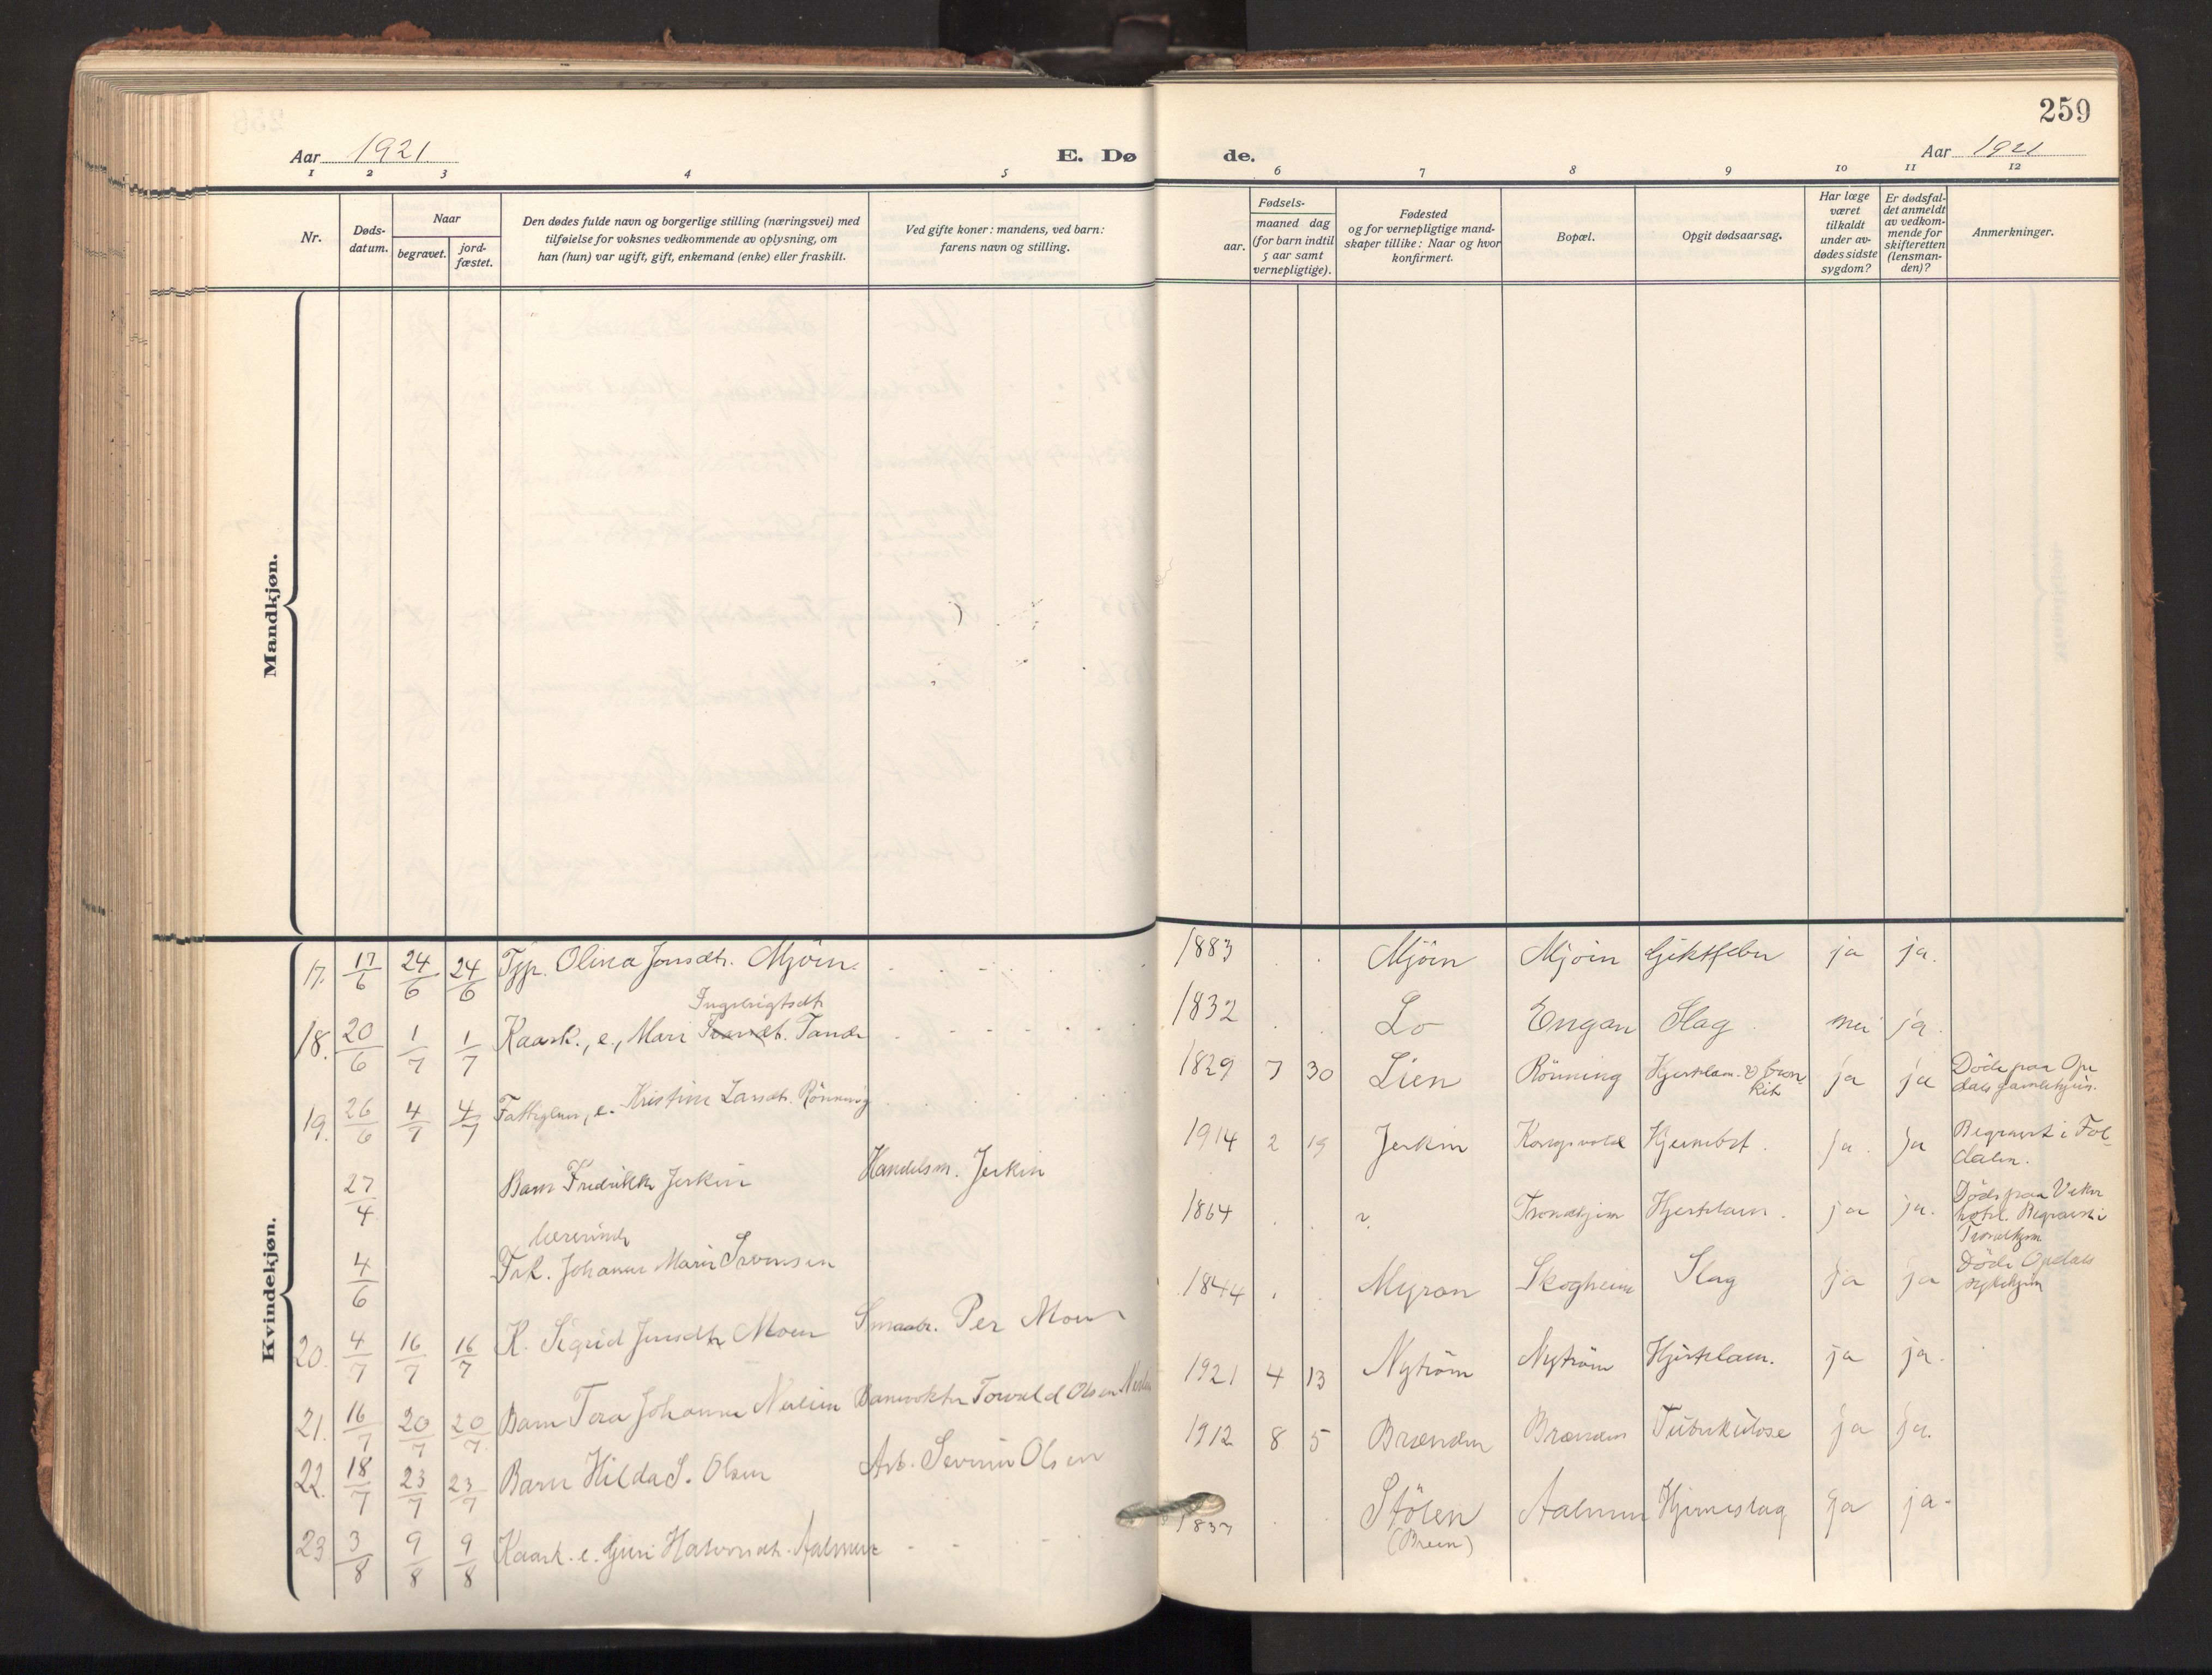 259
Aar 1921
E. Dø
de.
Aar 1921
1 2 3 4 5 6 7 8 9 10 11 12
Nr.
Døds-
datum.
Naar
begravet.
jord-
fæstet.
Den dødes fulde navn og borgerlige stilling (næringsvei) med
tilføielse for voksnes vedkommende av oplysning, om
han (hun) var ugift, gift, enkemand (enke) eller fraskilt.
Ved gifte koner: mandens, ved barn:
farens navn og stilling.
Fødsels-
aar.
maaned dag
(for barn indtil
5 aar samt
vernepligtige).
Fødested
og for vernepligtige mand-
skaper tillike: Naar og hvor
konfirmert.
Bopæl.
Opgit dødsaarsag.
Har læge
været
tilkaldt
under av-
dødes sidste
sygdom?
Er dødsfal-
det anmeldt
av vedkom-
mende for
skifteretten
(lensman-
den)?
Anmerkninger.
Mandkjøn.
Kvindekjøn.
17. 17/6 24/6 24/6 Tjp. Olina Jonsdtr. Mjöen 1883 Mjöen Mjöen Giktfeber ja ja.
Ingebrigtsdtr
18. 20/6 1/7 1/7 Kaark., e., Mari Tande 1832 Lo Engan Slag nei ja.
19. 26/6 4/7 4/7 Fattiglem, e. Kristine Larsdtr. Rönning 1829 7 30 Lien Rönning Hjertelam. & bron-
kit ja ja Döde paa Op-
dals gamlehjem.
27/4 Barn Fredrikke Jerkin Handelsm. Jerkin 1914 2 19 Jerkin Kongsvold Hjernebet. ja. ja Begravet i Fol-
dalen.
lærerinde
4/6 Frk. Johanne Marie Svensen 1864 ?. Trondhjem Hjertelam. ja ja. Döde paa Viken
hotel. Begravet i
Trondhjem
20. 4/7 16/7 16/7 K. Sigrid Jensdtr Moen Smaabr. Per Moen 1844 Myran Skogheim Slag ja ja Döde Opdals
sykehjem
21. 16/7 20/7 20/7 Barn Tora Johanne Banevokter Torvald Olsen 1921 4 13 Nyström Nyström Hjertelam. ja ja.
22. 18/7 23/7 23/7 Barn Hilda S. Olsen Arb. Severin Olsen 1912 8 5 Brænden Brænden Tuberkulose ja ja.
23 3/8 9/8 9/8 Kaark. e. Guri Halvorsdtr. Aalmen 1837 Stölen
(Breen) Aalmen Hjerneslag ja ja-